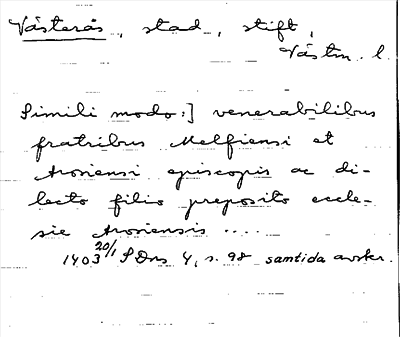 Västerås, stad, stift,
Västm. l.
Simili modo:] venerabilibus
fratribus Melfiensi et
Arosiensi episcopis ac di-
lecto filio preposito eccle-
sie Arosiensis ....
1403 20/1 SDns 4, s. 98 samtida avskr.